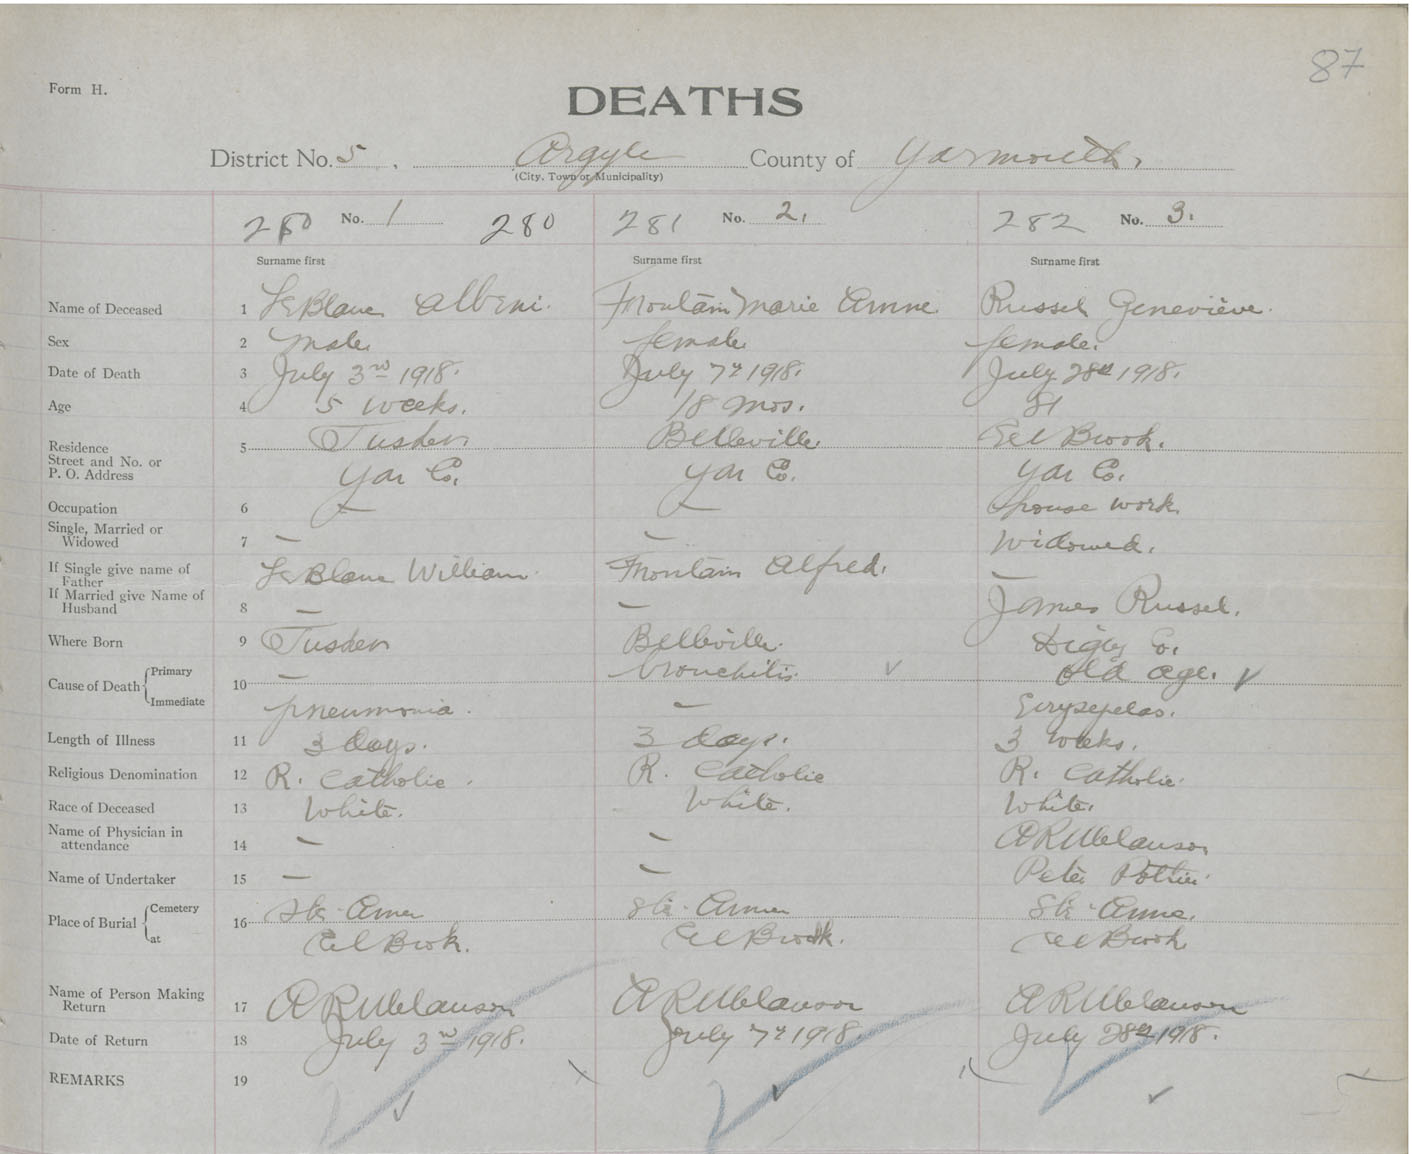 87
Form H.
DEATHS
District No. 5, Argyle County of Yarmouth,
(City, Town or Municipality)
280 No. 1 280 281 No. 2, 282 No. 3.
Surname first Surname first Surname first
Name of Deceased 1 LeBlanc Albeni. Frontain Marie Anne Russel Geneviève.
Sex 2 male. female. female.
Date of Death 3 July 3rd 1918. July 7th 1918. July 28th 1918.
Age 4 5 weeks. 18 mos. 81
Residence 5 Tusket Belleville. Eel Brook.
Street and No. or
P. O. Address Yar Co. Yar Co. Yar Co.
Occupation 6 — — house work
Single, Married or
Widowed 7 — — Widowed.
If Single give name of
Father LeBlanc William. Frontain Alfred. —
If Married give Name of
Husband 8 — — James Russel.
Where Born 9 Tusket Belleville. Digby Co.
Cause of Death Primary 10 — bronchitis. old age.
Immediate pneumonia. — Eirysepelas.
Length of Illness 11 3 days. 3 days. 3 weeks.
Religious Denomination 12 R. Catholic. R. Catholic R. Catholic.
Race of Deceased 13 White. White. White.
Name of Physician in
attendance 14 — — A R Melanson
Name of Undertaker 15 — — Peter Pothier.
Place of Burial Cemetery 16 Ste-Anne Ste-Anne Ste-Anne.
at Eel Brook. Eel Brook. Eel Brook
Name of Person Making
Return 17 A R Melanson A R Melanson A R Melanson
Date of Return 18 July 3rd 1918. July 7th 1918. July 28th 1918.
REMARKS 19